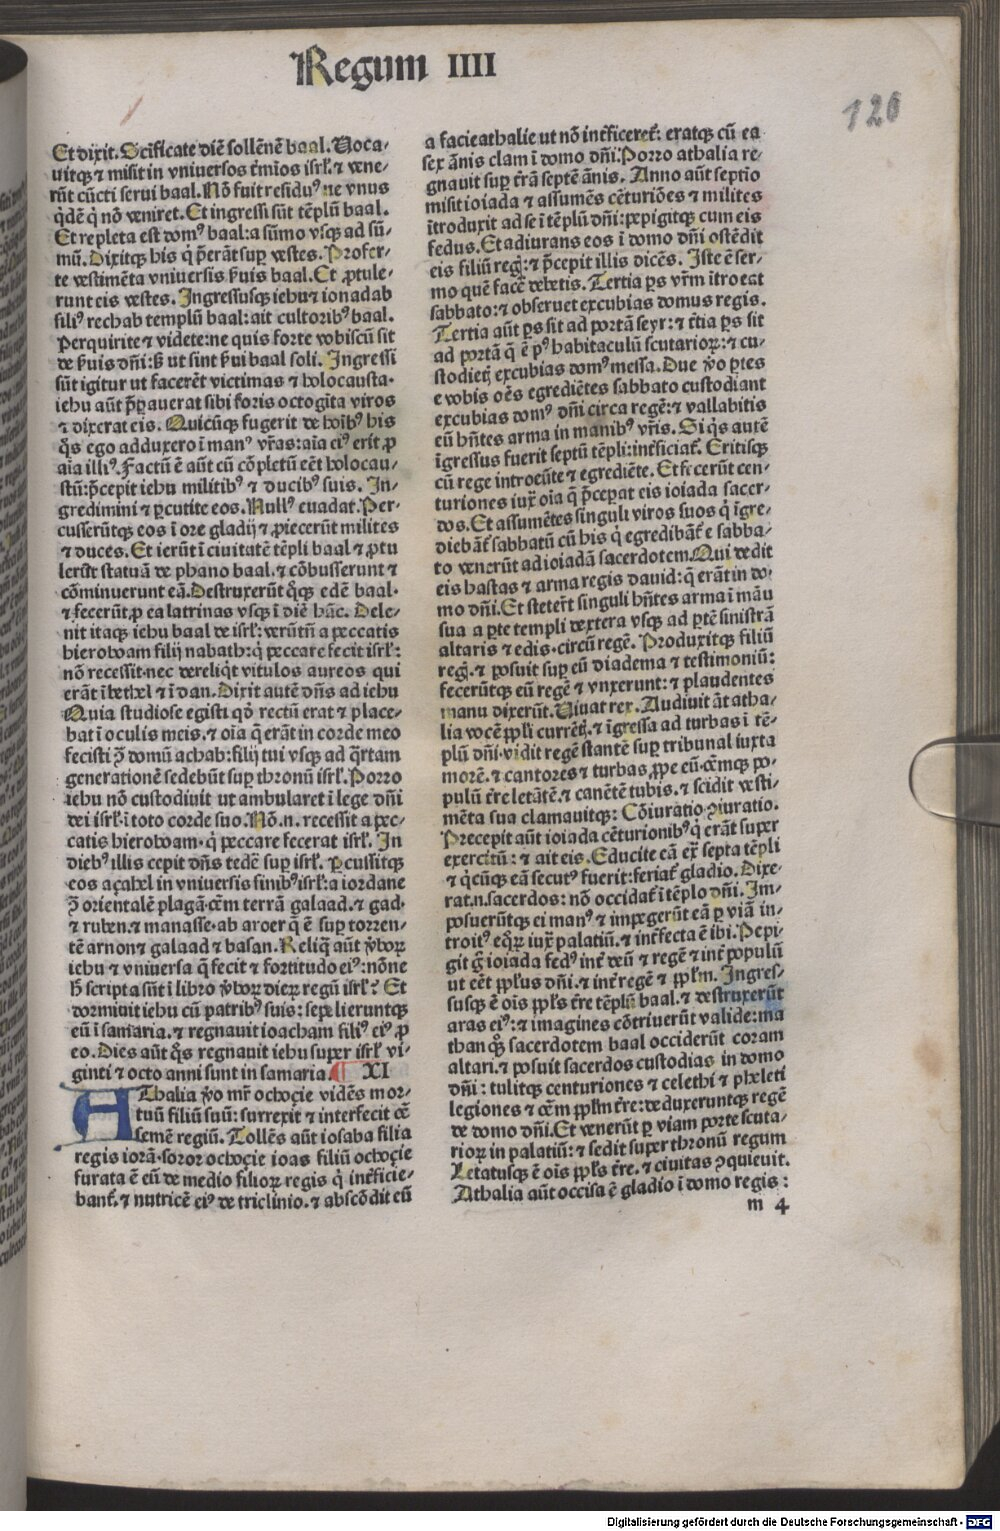 Regum IIII
120
Et dixit. Scificate diē sollēnē baal. Uoca-
uitqꝫ ⁊ misit in vniuersos t̄mīos isrł.⁊ vene-
rūt cūcti serui baal. Nō fuit residuꝰ ne vnus
q̇dē q̇ nō veniret. Et ingressi sūt tēplū baal.
Et repleta est domꝰ baal: a sūmo vsqꝫ ad sū-
mū. Dixitqꝫ his q̇ p̄erāt suꝑ vestes. Profer-
te vestimēta vniuersis ẜuis baal. Et ꝓtule-
runt eis vestes. Ingressusqꝫ iehu ⁊ ionadab
filiꝰ rechab templū baal: ait cultoribꝰ baal.
Perquirite ⁊ videte: ne quis forte vobiscū sit
de ẜuis dn̄i: sꝫ ut sint ẜui baal soli. Ingressi
sūt igitur ut facerēt victimas ⁊ holocausta.
iehu aūt p̄ꝑauerat sibi foris octogīta viros
⁊ dixerat eis. Quicūqꝫ fugerit de hoībꝰ his
q̇s ego adduxero ī manꝰ vr̄as: aīa eiꝰ erit ꝓ
aīa illiꝰ. Factū ē aūt cū cōpletū eēt holocau-
stū: p̄cepit iehu militibꝰ ⁊ ducibꝰ suis. In-
gredimini ⁊ ꝑcutite eos. Nullꝰ euadat. Per-
cusserūtqꝫ eos ī ore gladij ⁊ ꝓiecerūt milites
⁊ duces. Et ierūt ī ciuitatē tēpli baal ⁊ ꝓtu
lerūt statuā de phano baal.⁊ cōbusserunt ⁊
cōminuerunt eā. Destruxerūt q̇qꝫ edē baal.
⁊ fecerūt ꝓ ea latrinas vsqꝫ ī diē hāc. Dele-
nit itaqꝫ iehu baal de isrł: verūtn̄ a peccatis
hieroboam filij nabath: q̇ peccare fecit isrł:
nō recessit. nec dereliq̇t vitulos aureos qui
erāt ī bethel ⁊ ī dan. Dixit autē dn̄s ad iehu
Quia studiose egisti qd̓ rectū erat ⁊ place-
bat ī oculis meis.⁊ oīa q̄ erāt in corde meo
fecisti ꝯ̄ domū achab: filij tui vsqꝫ ad q̇rtam
generationē sedebūt suꝑ thronū isrł. Porro
iehu nō custodiuit ut ambularet ī lege dn̄i
dei isrł ī toto corde suo. Nō.n. recessit a pec-
catis hieroboam. q̇ peccare fecerat isrł. In
diebꝰ illis cepit dn̄s tedē suꝑ isrł. Ꝑcussitqꝫ
eos açahel in vniuersis finibꝰ isrł: a iordane
ꝯ̄ orientalē plagā. oēm terrā galaad.⁊ gad.
⁊ ruben.⁊ manasse. ab aroer q̄ ē suꝑ torren-
tē arnon ⁊ galaad ⁊ basan. Reliq̄ aūt v̓boꝝ
iehu ⁊ vniuersa q̄ fecit ⁊ fortitudo eiꝰ: nōne
h̓ scripta sūt ī libro v̓boꝝ dieꝝ regū isrł? Et
dormiuit iehu cū patribꝰ suis: sepelieruntqꝫ
eū ī samaria.⁊ regnauit ioacham filiꝰ eiꝰ ꝓ
eo. Dies aūt q̇s regnauit iehu super isrł vi-
ginti ⁊ octo anni sunt in samaria. ¶ XI
AThalia v̓o mr̄ ochoçie vidēs mor-
tuū filiū suū: surrexit ⁊ interfecit oē
semē regiū. Tollēs aūt iosaba filia
regis iorā. soror ochoçie ioas filiū ochoçie
furata ē eū de medio filioꝝ regis q̇ int̓ficie-
bant̄.⁊ nutricē eiꝰ de triclinio.⁊ abscōdit eū
a facie athalie ut nō int̓ficeret̄: eratqꝫ cū ea
sex ānis clam ī domo dn̄i. Porro athalia re-
gnauit suꝑ t̓rā septē ānis. Anno aūt septīo
misit ioiada ⁊ assumēs cēturiōes ⁊ milites
ītroduxit ad se ī tēplū dn̄i: pepigitqꝫ cum eis
fedus. Et adiurans eos ī domo dn̄i ostēdit
eis filiū reg̓: ⁊ p̄cepit illis dicēs. Iste ē ser-
mo quē facē debetis. Tertia ꝑs vr̄m ītroeat
sabbato: ⁊ obseruet excubias domus regis.
Tertia aūt ꝑs sit ad portā seyr: ⁊ t̓tia ꝑs sit
ad portā q̄ ē pꝰ habitaculū scutarioꝝ: ⁊ cu-
stodietꝭ excubias domꝰ messa. Due v̓o ꝑtes
e vobis oēs egrediētes sabbato custodiant
excubias domꝰ dn̄i circa regē: ⁊ vallabitis
eū hn̄tes arma in manibꝰ vr̄is. Si q̇s autē
īgressus fuerit septū tēpli: int̓ficiat̄. Eritisqꝫ
cū rege introeūte ⁊ egrediēte. Et fecerūt cen-
turiones iuxͣ oīa q̄ p̄ceꝑat eis ioiada sacer-
dos. Et assumētes singuli viros suos q̇ īgre-
diebāt̄ sabbatū cū his q̇ egredibāt̄ e sabba-
to venerūt ad ioiadā sacerdotem. Qui dedit
eis hastas ⁊ arma regis dauid: q̄ erāt in do-
mo dn̄i. Et stetert̄ singuli hn̄tes arma ī māu
sua a ꝑte templi dextera vsqꝫ ad ꝑtē sinistrā
altaris ⁊ edis. circū regē. Produxitqꝫ filiū
reg̓.⁊ posuit suꝑ eū diadema ⁊ testimoniū:
fecerūtqꝫ eū regē ⁊ vnxerunt: ⁊ plaudentes
manu dixerūt. Viuat rex. Audiuit āt atha-
lia vocē ppłi currētꝭ.⁊ īgressa ad turbas ī tē-
plū dn̄i. vidit regē stantē suꝑ tribunal iuxta
morē.⁊ cantores ⁊ turbas ꝓpe eū. oēmqꝫ po-
pulū t̓re letātē.⁊ canētē tubis.⁊ scidit vesti-
mēta sua clamauitqꝫ: Cōiuratio ꝯiuratio.
Precepit aūt ioiada cēturionibꝰ q̇ erāt super
exercitū: ⁊ ait eis. Educite eā exͣ septa tēpli
⁊ q̇cūqꝫ eā secutꝰ fuerit: feriat̄ gladio. Dixe-
rat.n. sacerdos: nō occidat̄ ī tēplo dn̄i. Im-
posuerūtqꝫ ei manꝰ ⁊ impegerūt eā ꝑ viā in-
troitꝰ eq̇ꝝ iuxͣ palatiū.⁊ int̓fecta ē ibi. Pepi-
git g̓ ioiada fedꝰ int̓ deū ⁊ regē ⁊ int̓ populū
ut eēt ppłus dn̄i.⁊ int̓ regē ⁊ ppłm. Ingres-
susqꝫ ē oīs ppłs t̓re tēplū baal.⁊ destruxerūt
aras eiꝰ: ⁊ imagines cōtriuerūt valide: ma
than qꝫ sacerdotem baal occiderūt coram
altari.⁊ posuit sacerdos custodias in domo
dn̄i: tulitqꝫ centuriones ⁊ celethi ⁊ pheleti
legiones ⁊ oēm ppłm t̓re: deduxeruntqꝫ regē
de domo dn̄i. Et venerūt ꝑ viam porte scuta-
rioꝝ in palatiū: ⁊ sedit super thronū regum
Letatusqꝫ ē oīs ppłs t̓re.⁊ ciuitas ꝯquieuit.
Athalia aūt occisa ē gladio ī domo regis:
m 4
Digitalisierung gefördert durch die Deutsche Forschungsgemeinschaft - DFG